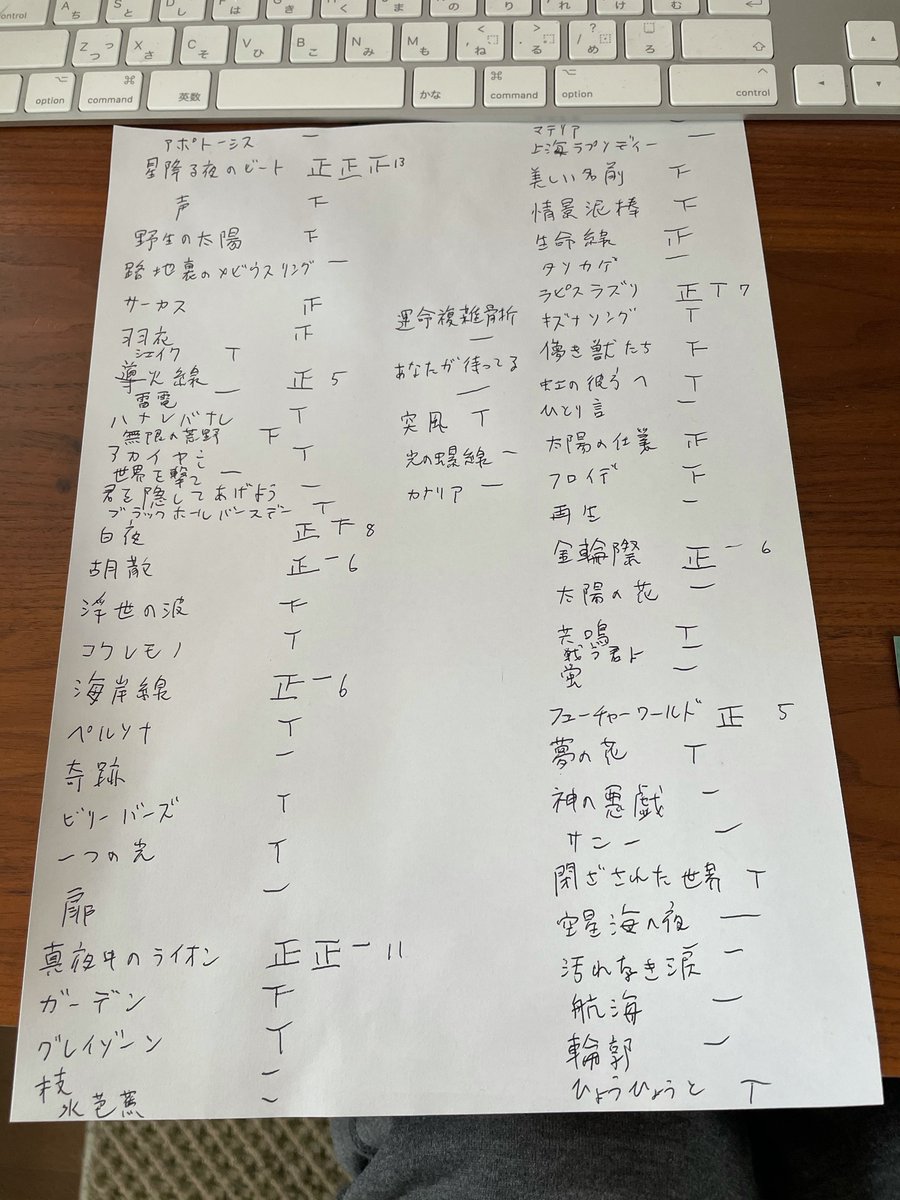 アポトーシス 一
星降る夜のビート 正 正 下 13
声 下
野生の太陽 下
路地裏のメビウスリング 一
サーカス 正
羽衣 正
シェイク T
導火線 正 5
雷電 一
ハナレバナレ T
無限の荒野 下
アカイヤミ T
世界を撃て 一
君を隠してあげよう 一
ブラックホールバースデー T
白夜 正 下 8
胡散 正 一 6
浮世の波 下
コワレモノ T
海岸線 正 一 6
ペルソナ T
奇跡 一
ビリーバーズ T
一つの光 T
扉 一
真夜中のライオン 正 正 一 11
ガーデン 下
グレイゾーン T
枝 一
水芭蕉 一
運命複雑骨折
一
あなたが待ってる
一
突風 T
光の螺線 一
カナリア 一
マテリア 一
上海ラプソディー 一
美しい名前 下
情景泥棒 下
生命線 正
タソカゲ 一
ラピスラズリ 正 T 7
キズナソング T
儚き獣たち 下
虹の彼方へ T
ひとり言 一
太陽の仕業 正
フロイデ 下
再生 一
金輪際 正 一 6
太陽の花 一
共鳴 T
戦う君よ 一
蛍 一
フューチャーワールド 正 5
夢の花 T
神の悪戯 一
サニー 一
閉ざされた世界 T
空星海の夜 一
汚れなき涙 一
航海 一
輪郭 一
ひょうひょうと T
option
command
英数
かな
command
option
control